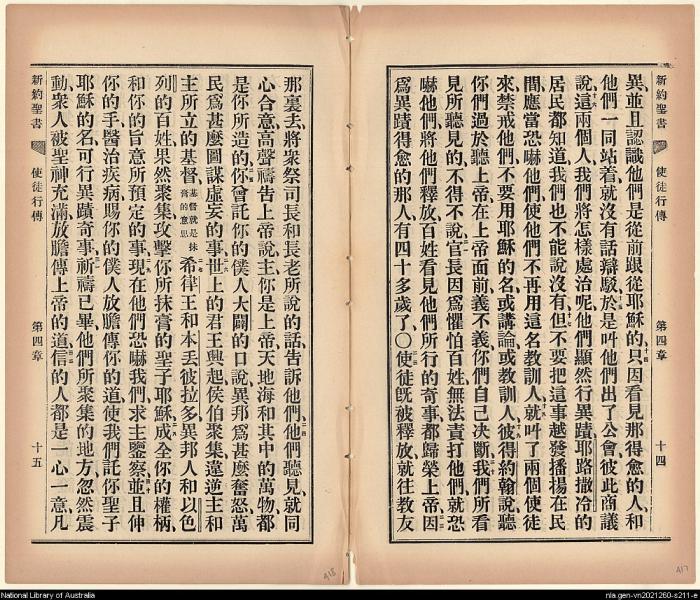 新約聖書 使徒行傳 第四章 十四
異、並且認識他們是從前跟從耶穌的、十四只因看見那得愈的人、和
他們一同站着、就沒有話辯駁、十五於是叫他們出了公會、彼此商議
說、十六這兩個人、我們將怎樣處治呢、他們顯然行異蹟、耶路撒冷的
居民都知道、我們也不能說沒有、十七但不要把這事越發播揚在民
間、應當恐嚇他們、使他們不再用這名教訓人、十八就叫了兩個使徒
來、禁戒他們、不要用耶穌的名、或講論或教訓人、十九彼得約翰說、聽
你們過於聽上帝、在上帝面前義不義、你們自己決斷、二十我們所看
見所聽見的、不得不說、二一官長因為懼怕百姓、無法責打他們、就恐
嚇他們、將他們釋放、百姓看見他們所行的奇事、都歸榮上帝、二二因
爲異蹟得愈的那人、有四十多歲了、〇二三使徒旣被釋放、就往教友
那裏去、將衆祭司長和長老所說的話告訴他們、二四他們聽見、就同
心合意、高聲禱告上帝說、主、你是上帝、天地海和其中的萬物、都
是你所造的、二五你曾託你的僕人大闢的口說、異邦爲甚麼奮怒、萬
民爲甚麼圖謀虛妄的事、二六世上的君王興起、侯伯聚集、違逆主和
主所立的基督、基督就是抹膏的意思二七希律王和本丢彼拉多、異邦人和以色
列的百姓、果然聚集、攻擊你所抹膏的聖子耶穌、二八成全你的權柄、
和你的旨意所預定的事、二九現在他們恐嚇我們、求主鑒察、三十並且伸
你的手、醫治疾病、賜你的僕人放膽傳你的道、使我們託你聖子
耶穌的名、可行異蹟奇事、三一祈禱已畢、他們所聚集的地方、忽然震
動、衆人被聖神充滿、放膽傳上帝的道、三二信的人都是一心一意、凡
新約聖書 使徒行傳 第四章 十五
418
417
National Library of Australia
nla.gen-vn2021260-s211-e